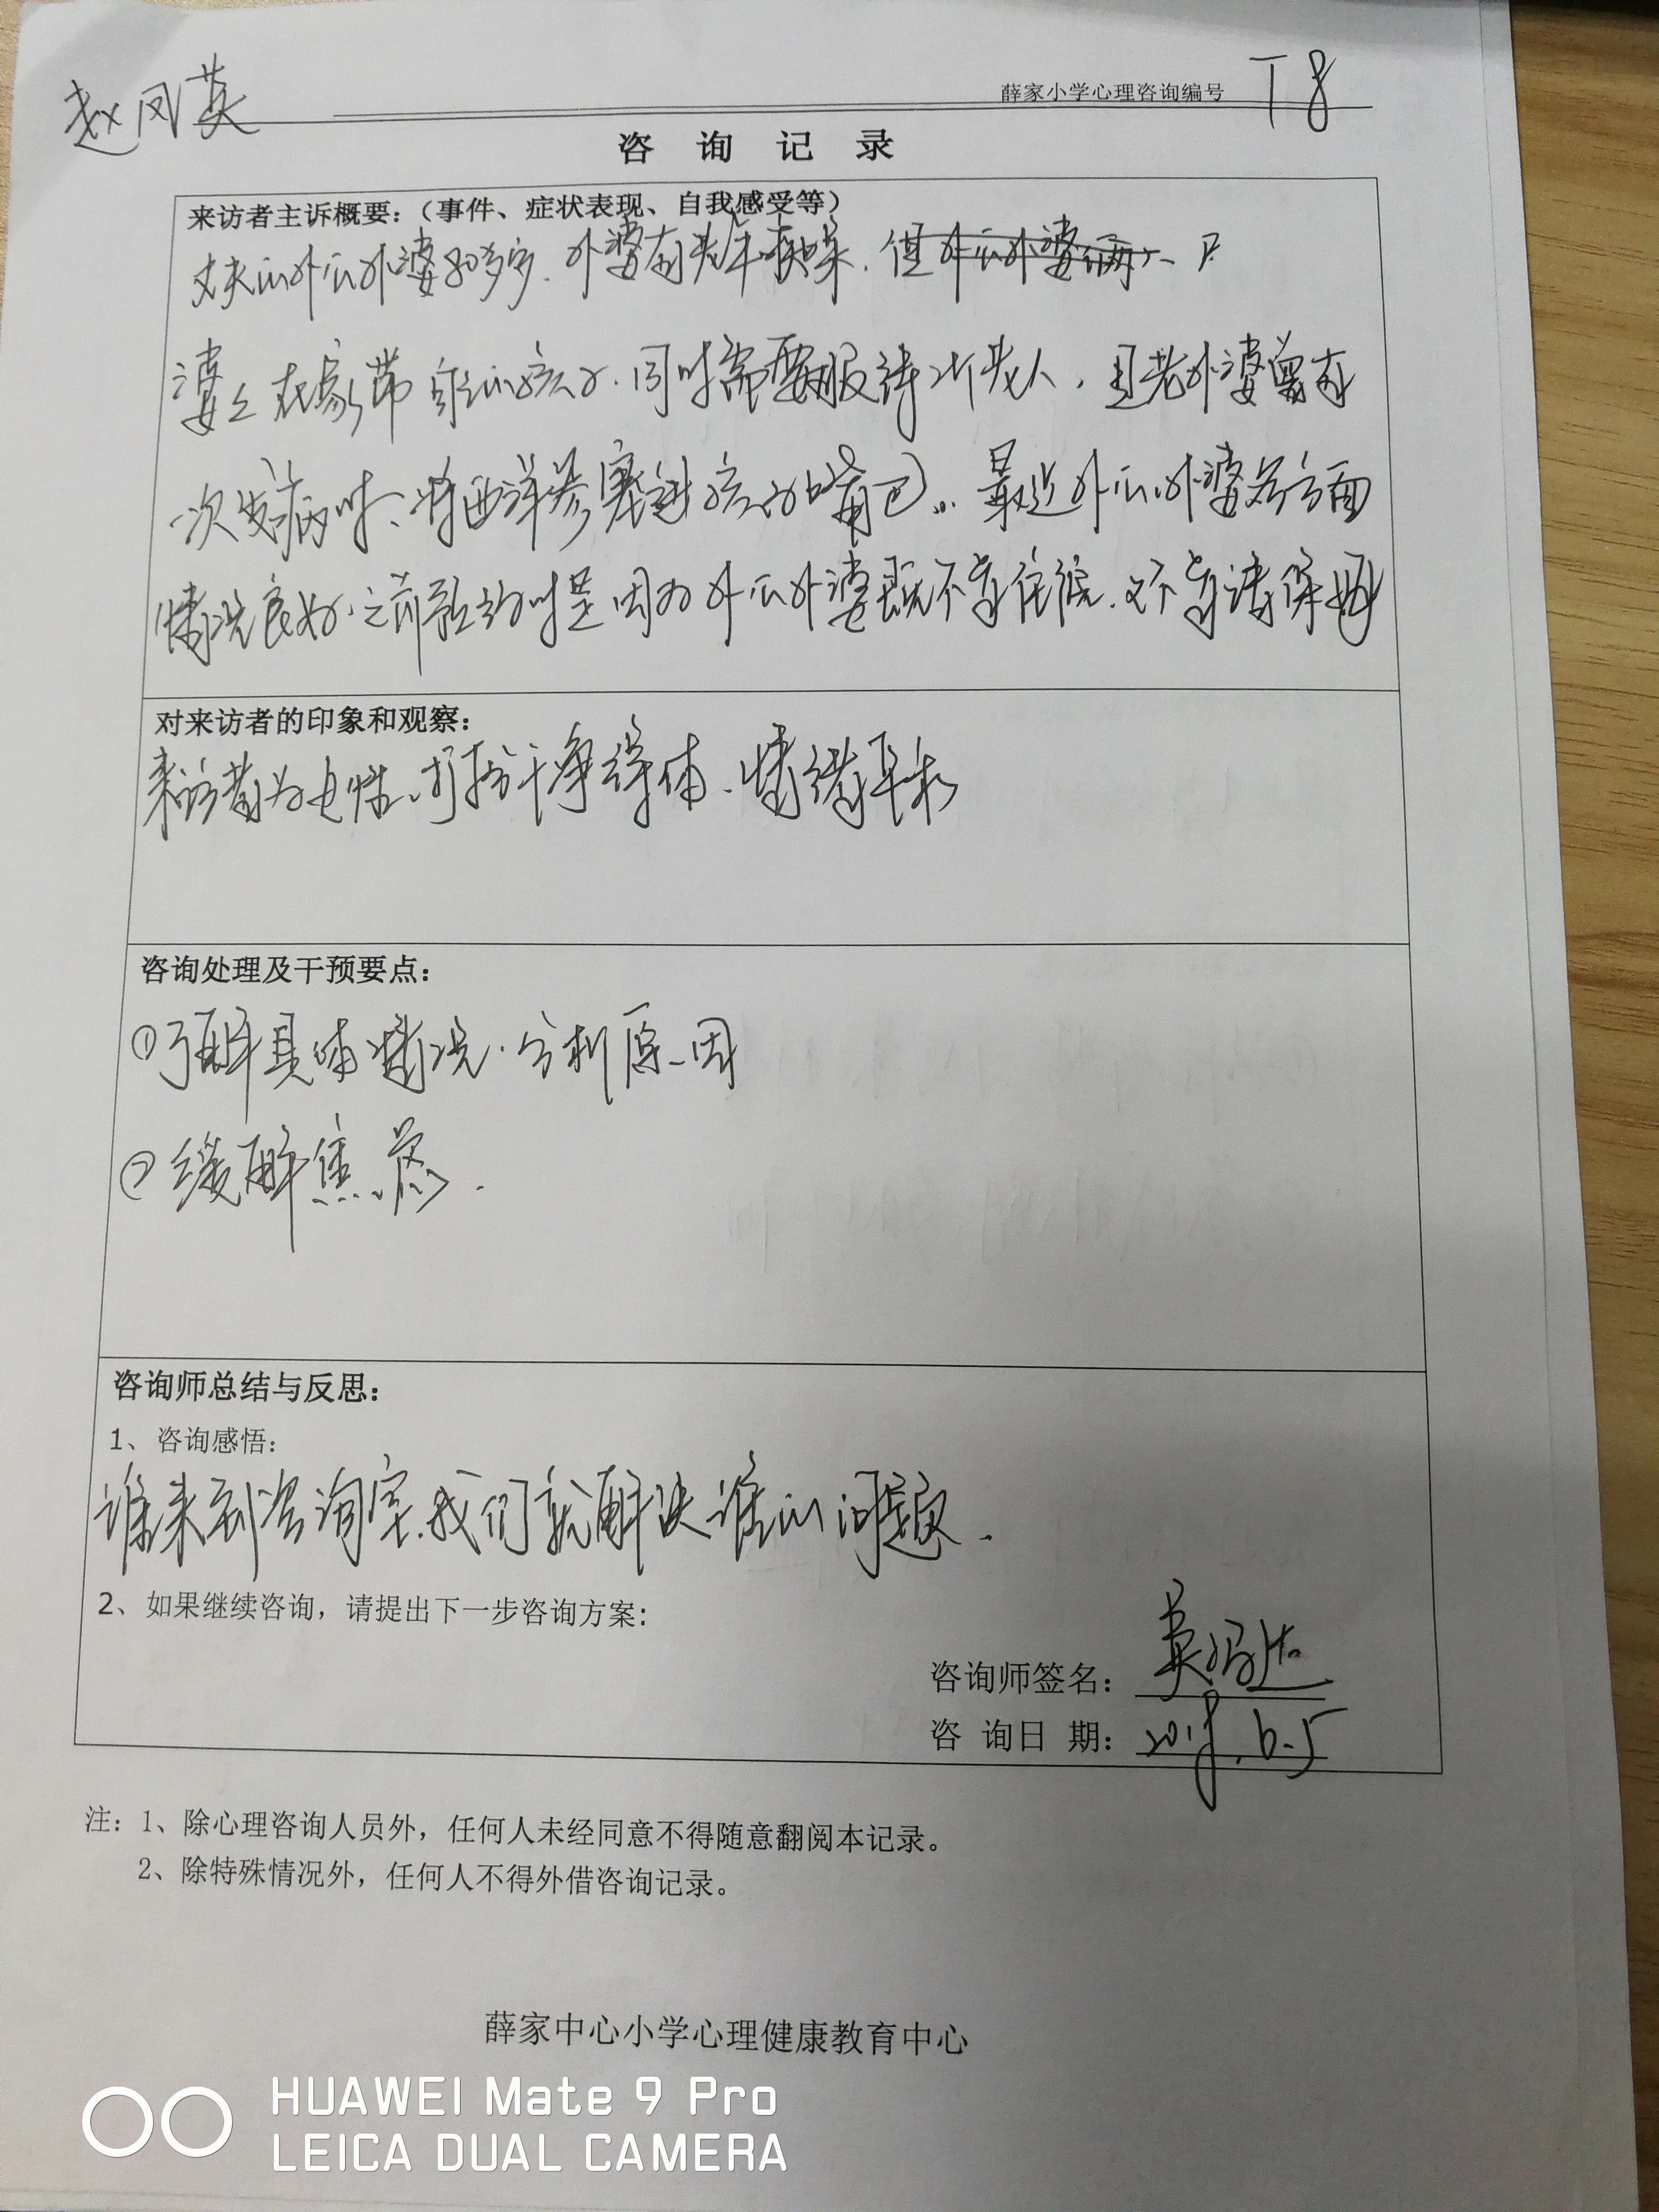 赵凤英
薛家小学心理咨询编号 T8
咨 询 记 录
来访者主诉概要：（事件、症状表现、自我感受等）
丈夫的外公外婆80多岁．外婆有老年痴呆．但外公外婆俩
婆婆在家带自己的孩子．同时需要服侍2个老人，且老外婆曾有
一次发病时、将西洋参塞进孩子的嘴巴… 最近外公外婆各方面
情况良好．之前预约时是因为外公外婆既不肯住院．又不肯请保姆
对来访者的印象和观察：
来访者为女性、打扮干净得体、情绪平和
咨询处理及干预要点：
①了解具体情况．分析原因
②缓解焦虑．
咨询师总结与反思：
1、咨询感悟：
谁来到咨询室．我们就解决谁的问题．
2、如果继续咨询，请提出下一步咨询方案：
咨询师签名：
咨 询 日 期：2018.6.5
注：1、除心理咨询人员外，任何人未经同意不得随意翻阅本记录。
2、除特殊情况外，任何人不得外借咨询记录。
薛家中心小学心理健康教育中心
HUAWEI Mate 9 Pro
LEICA DUAL CAMERA